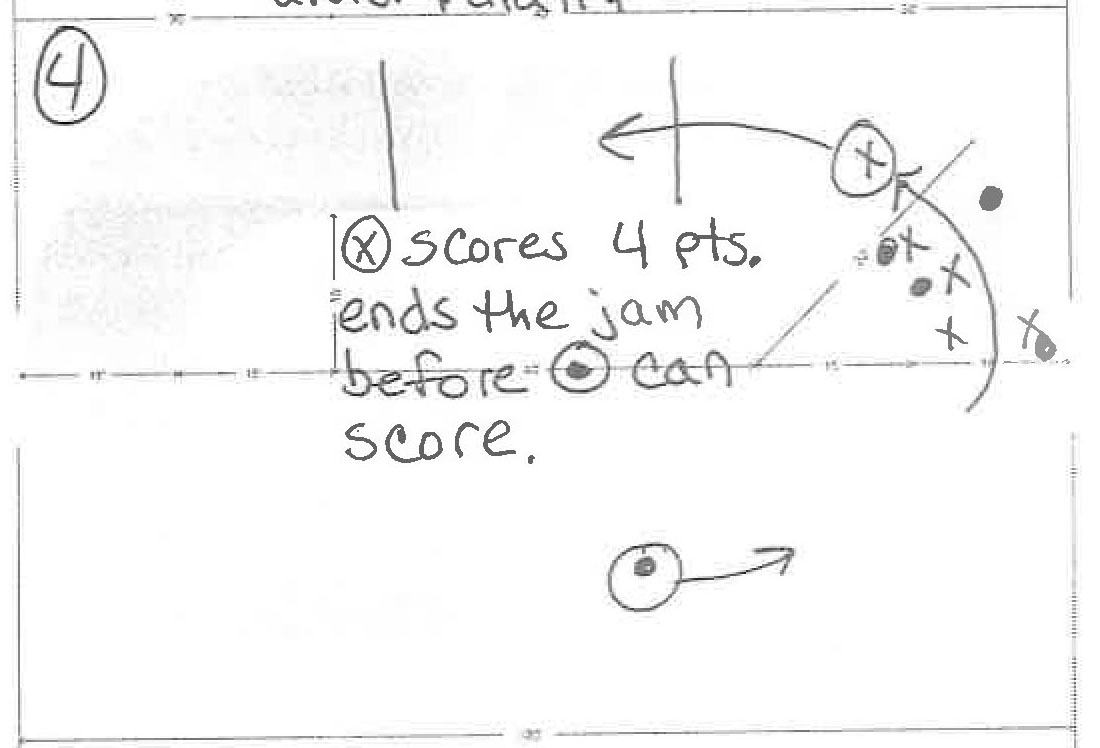 4
ⓧ scores 4 pts.
ends the jam
before ⊙ can
score.